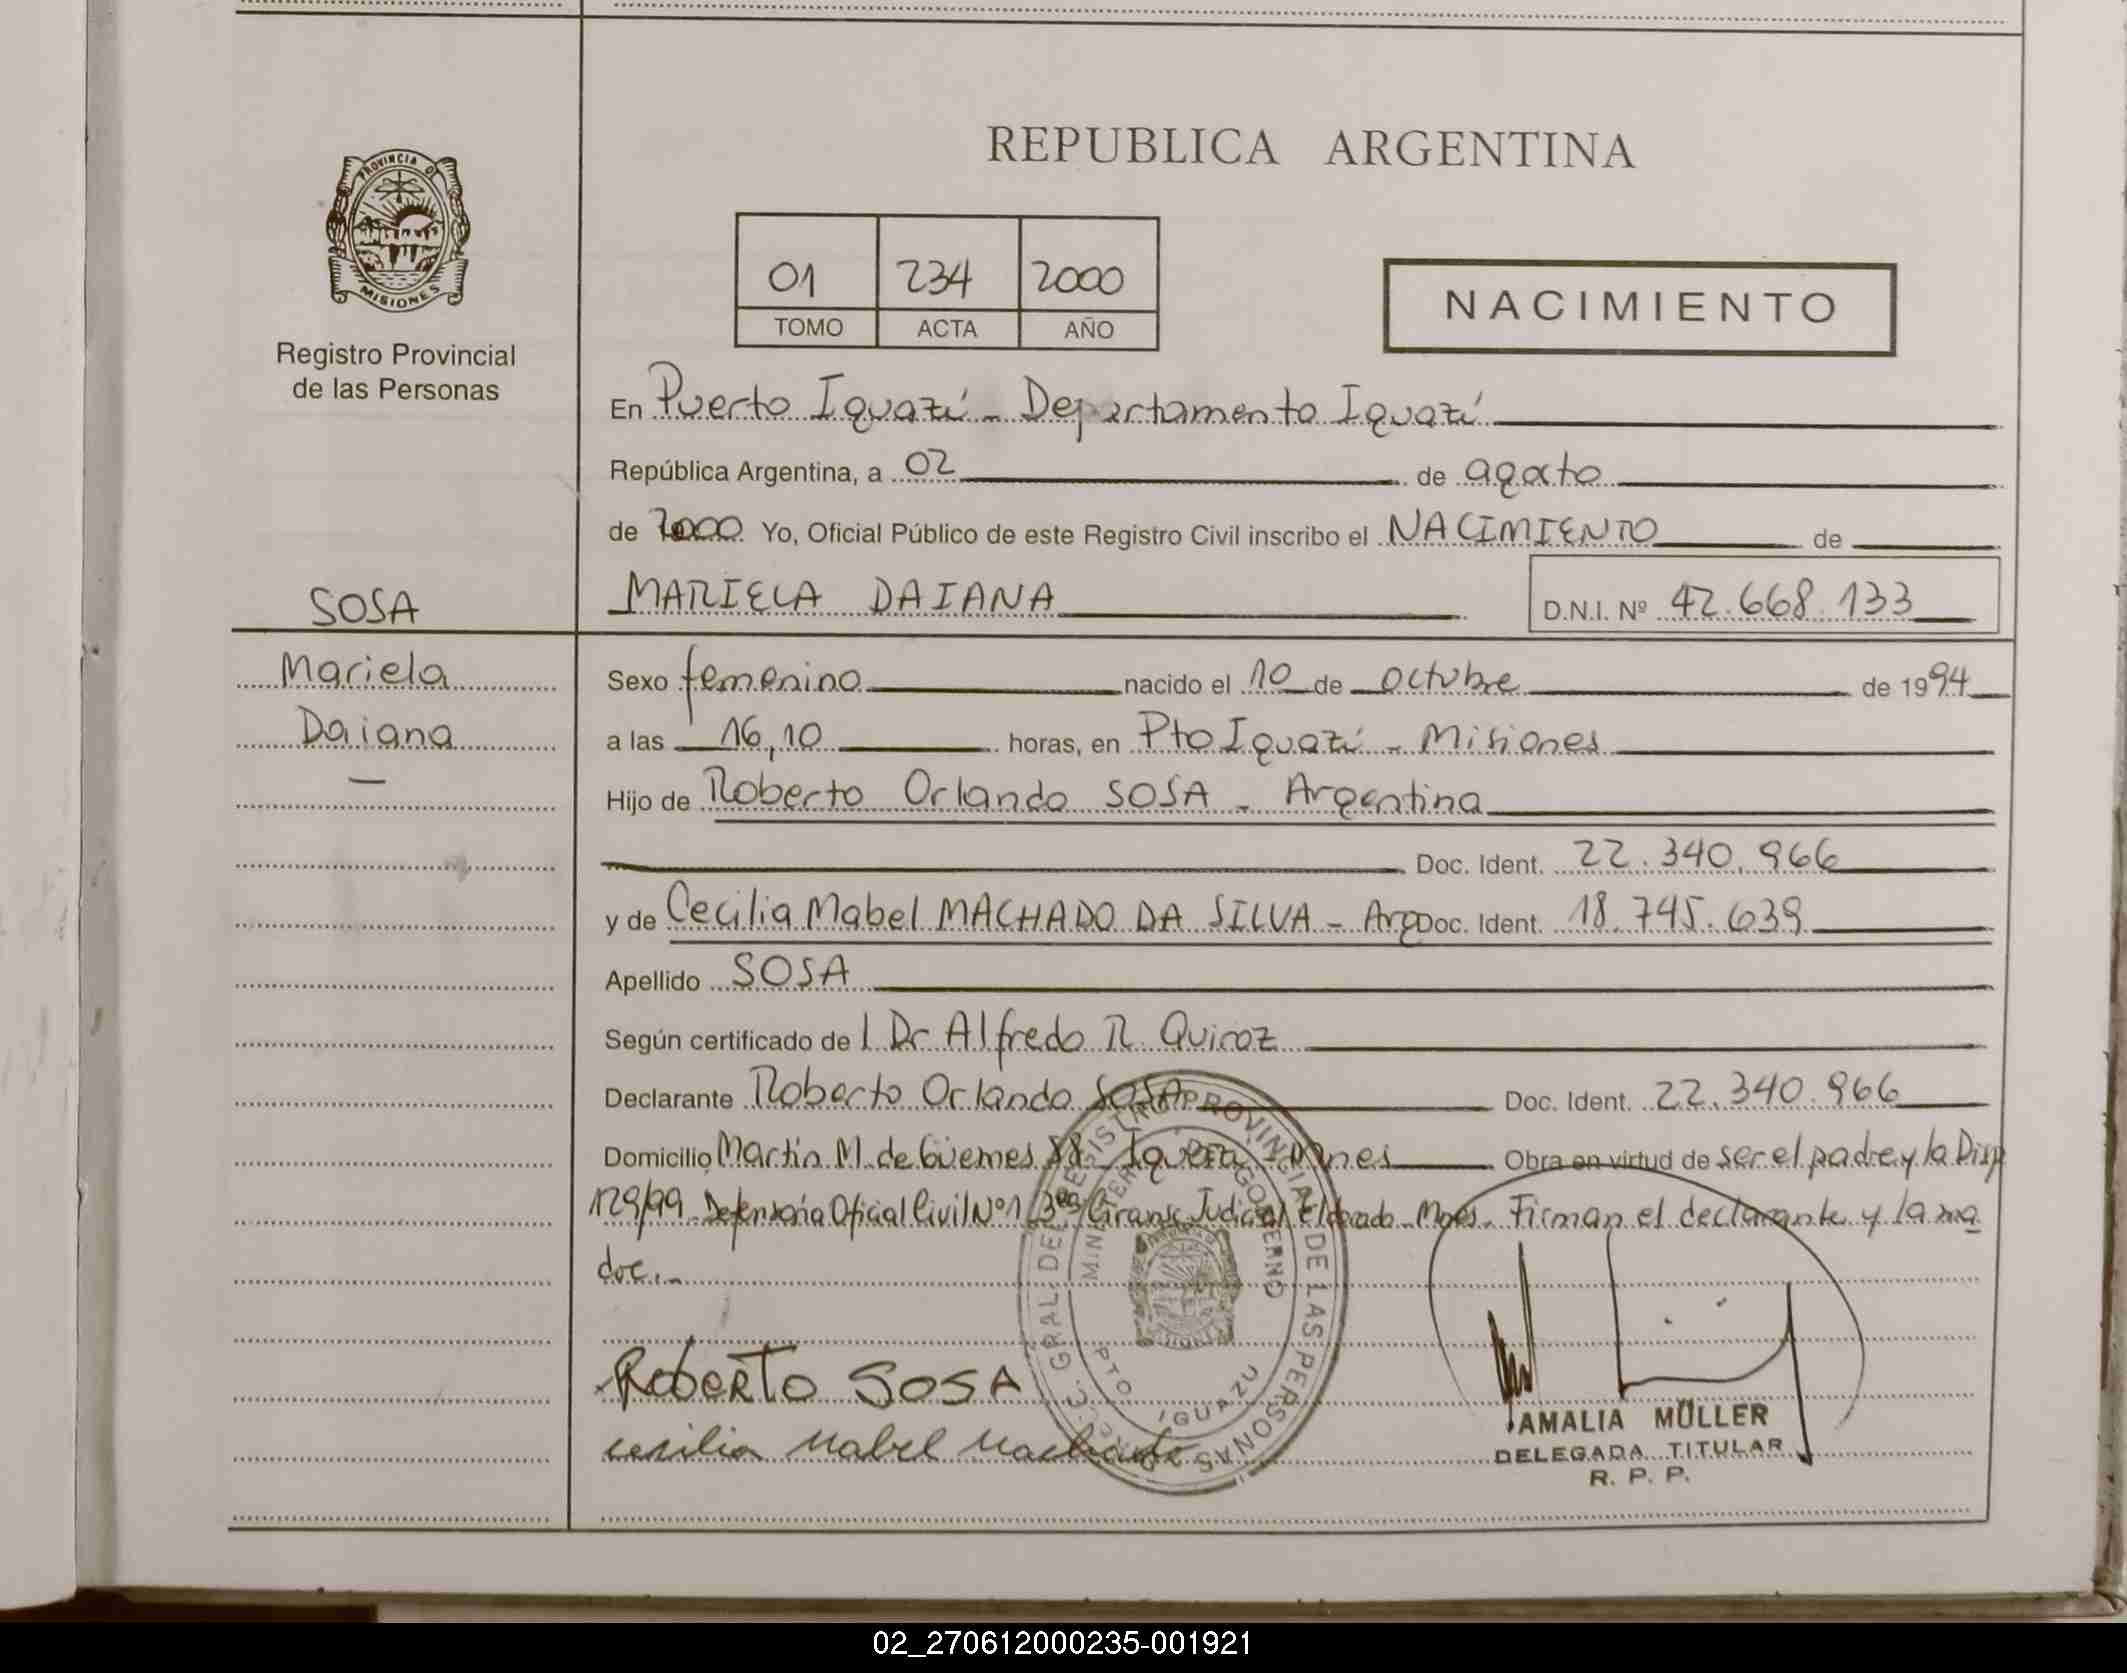 REPUBLICA ARGENTINA
PROVINCIA DE
MISIONES
Registro Provincial
de las Personas
01 234 2000
TOMO ACTA AÑO
NACIMIENTO
En Puerto Iguazú - Departamento Iguazú
República Argentina, a 02 de agosto
de 2000 Yo, Oficial Público de este Registro Civil inscribo el NACIMIENTO de
MARIELA DAIANA D.N.I. Nº 42.668.133
SOSA
Mariela
Daiana
Sexo femenino nacido el 10 de octubre de 1994
a las 16,10 horas, en Pto Iguazú - Misiones
Hijo de Roberto Orlando SOSA - Argentina
Doc. Ident. 22.340.966
y de Cecilia Mabel MACHADO DA SILVA - Arg Doc. Ident. 18.745.639
Apellido SOSA
Según certificado de l Dr Alfredo R. Quiroz
Declarante Roberto Orlando SOSA Doc. Ident. 22.340.966
Domicilio Martín M. de Güemes 88 - Iguazú - Mnes Obra en virtud de ser el padre y la Disp
129/99 Defensoría Oficial Civil Nº 1 3era Circunsc Judicial Eldorado - Mnes. Firman el declarante y la ma
dre.-
REGISTRO PROVINCIAL DE LAS PERSONAS
MINISTERIO DE GOBIERNO
PTO IGUAZU
Roberto SOSA
cesilia Mabel Machado
AMALIA MÜLLER
DELEGADA TITULAR
R. P. P.
02_270612000235-001921